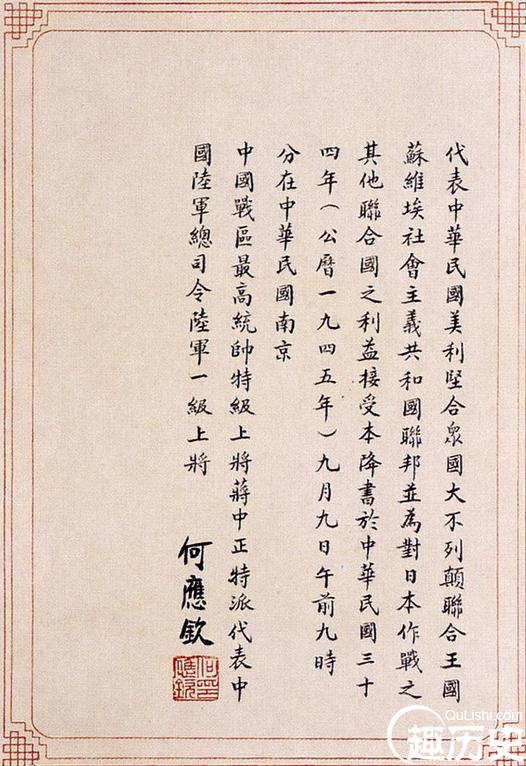 代表中華民國美利堅合眾國大不列顛聯合王國
蘇維埃社會主義共和國聯邦並為對日本作戰之
其他聯合國之利益接受本降書於中華民國三十
四年(公曆一九四五年)九月九日午前九時
分在中華民國南京
中國戰區最高統帥特級上將蔣中正特派代表中
國陸軍總司令陸軍一級上將
何應欽
何應欽
QuLishi.com
趣历史